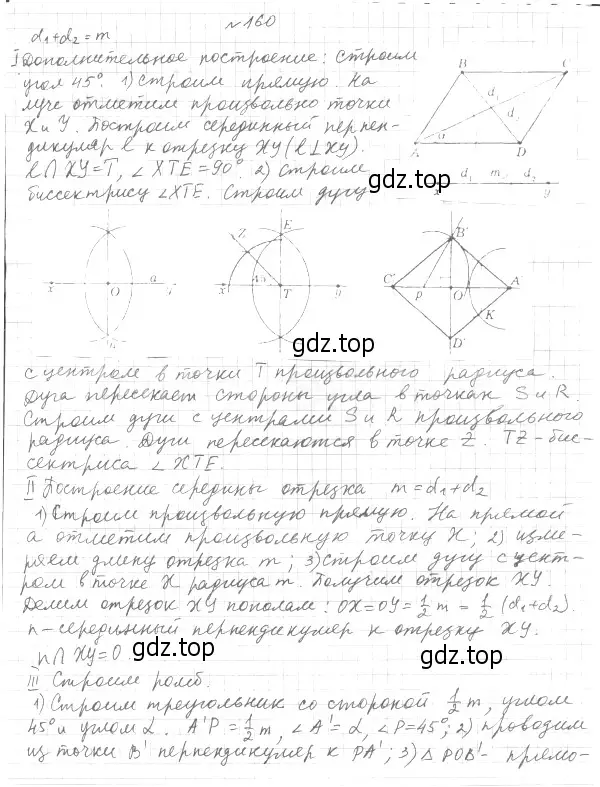 №160
d₁+d₂=m
I Дополнительное построение: строим
угол 45°. 1) Строим прямую. На
луче отметим произвольно точки
X и Y. Построим серединный перпен-
дикуляр l к отрезку XY (l⊥XY).
l∩XY=T, ∠XTE=90°. 2) Строим
биссектрису ∠XTE. Строим дугу
gdz.top
B C
d
d
α
A D
x d₁ m d₂
Z E B'
x O a y x 45° T y C' P O' A'
K
D'
gdz.top
с центром в точки T произвольного радиуса.
Дуга пересекает стороны угла в точках S и R.
Строим дуги с центрами S и R произвольного
радиуса. Дуги пересекаются в точке Z. TZ - бис-
сектриса ∠XTE.
II Построение середины отрезка m=d₁+d₂
1) Строим произвольную прямую. На прямой
а отметим произвольную точку X; 2) изме-
ряем длину отрезка m; 3) Строим дугу с цент-
ром в точке X радиуса m. Получим отрезок XY.
Делим отрезок XY пополам: OX=OY=½ m = ½ (d₁+d₂).
n - серединный перпендикуляр к отрезку XY.
n∩XY=O
gdz.top
III Строим ромб.
1) Строим треугольник со стороной ½ m, углом
45° и углом α. A'P=½ m, ∠A'=α, ∠P=45°; 2) проводим
из точки B' перпендикуляр к PA'; 3) △POB' - прямо-
gdz.top